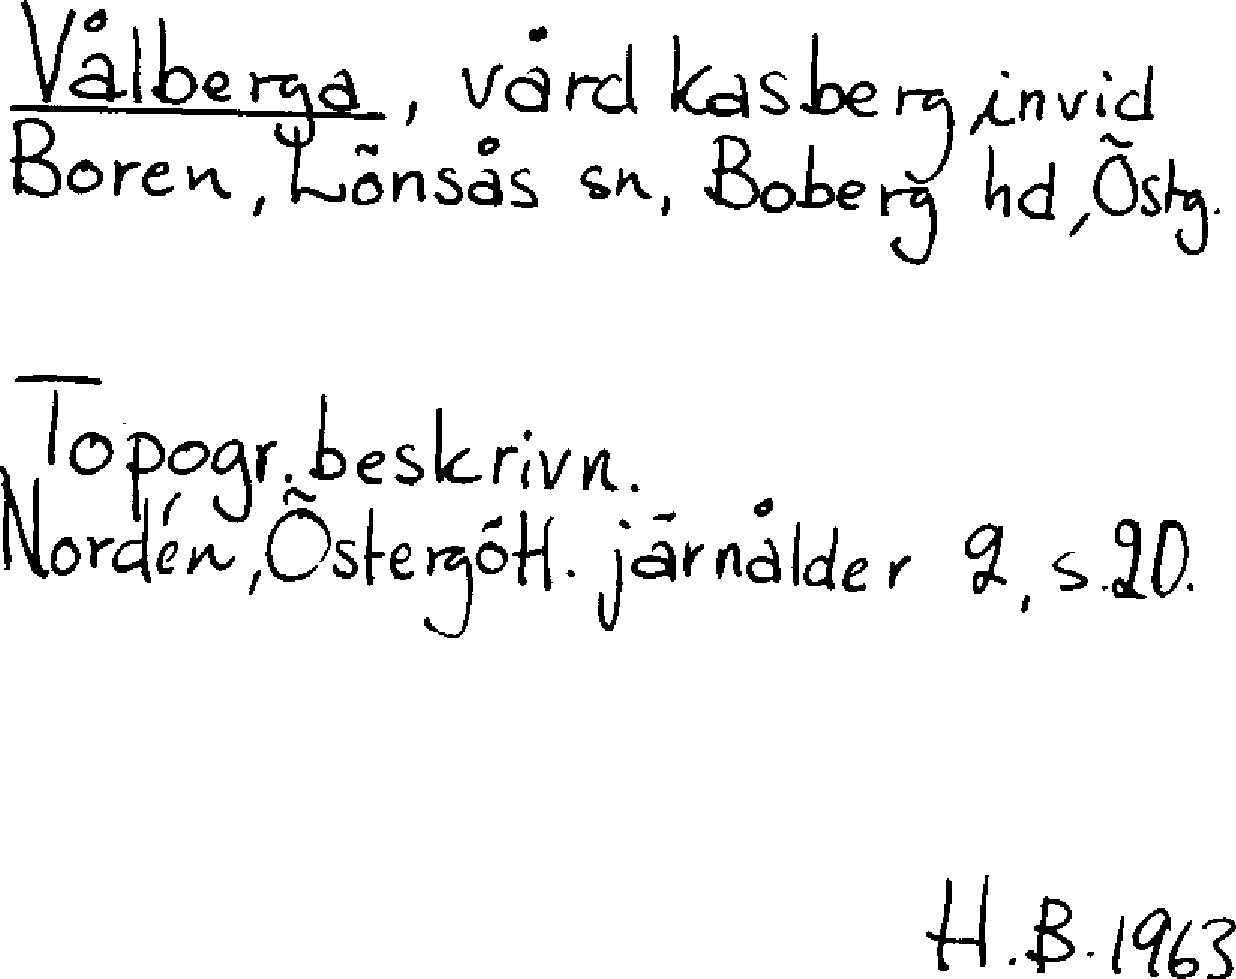 Vålberga, vårdkasberg invid
Boren, Lönsås sn, Boberg hd, Östg.
Topogr. beskrivn.
Nordén, Östergött. järnålder 2, s. 20.
H.B. 1963